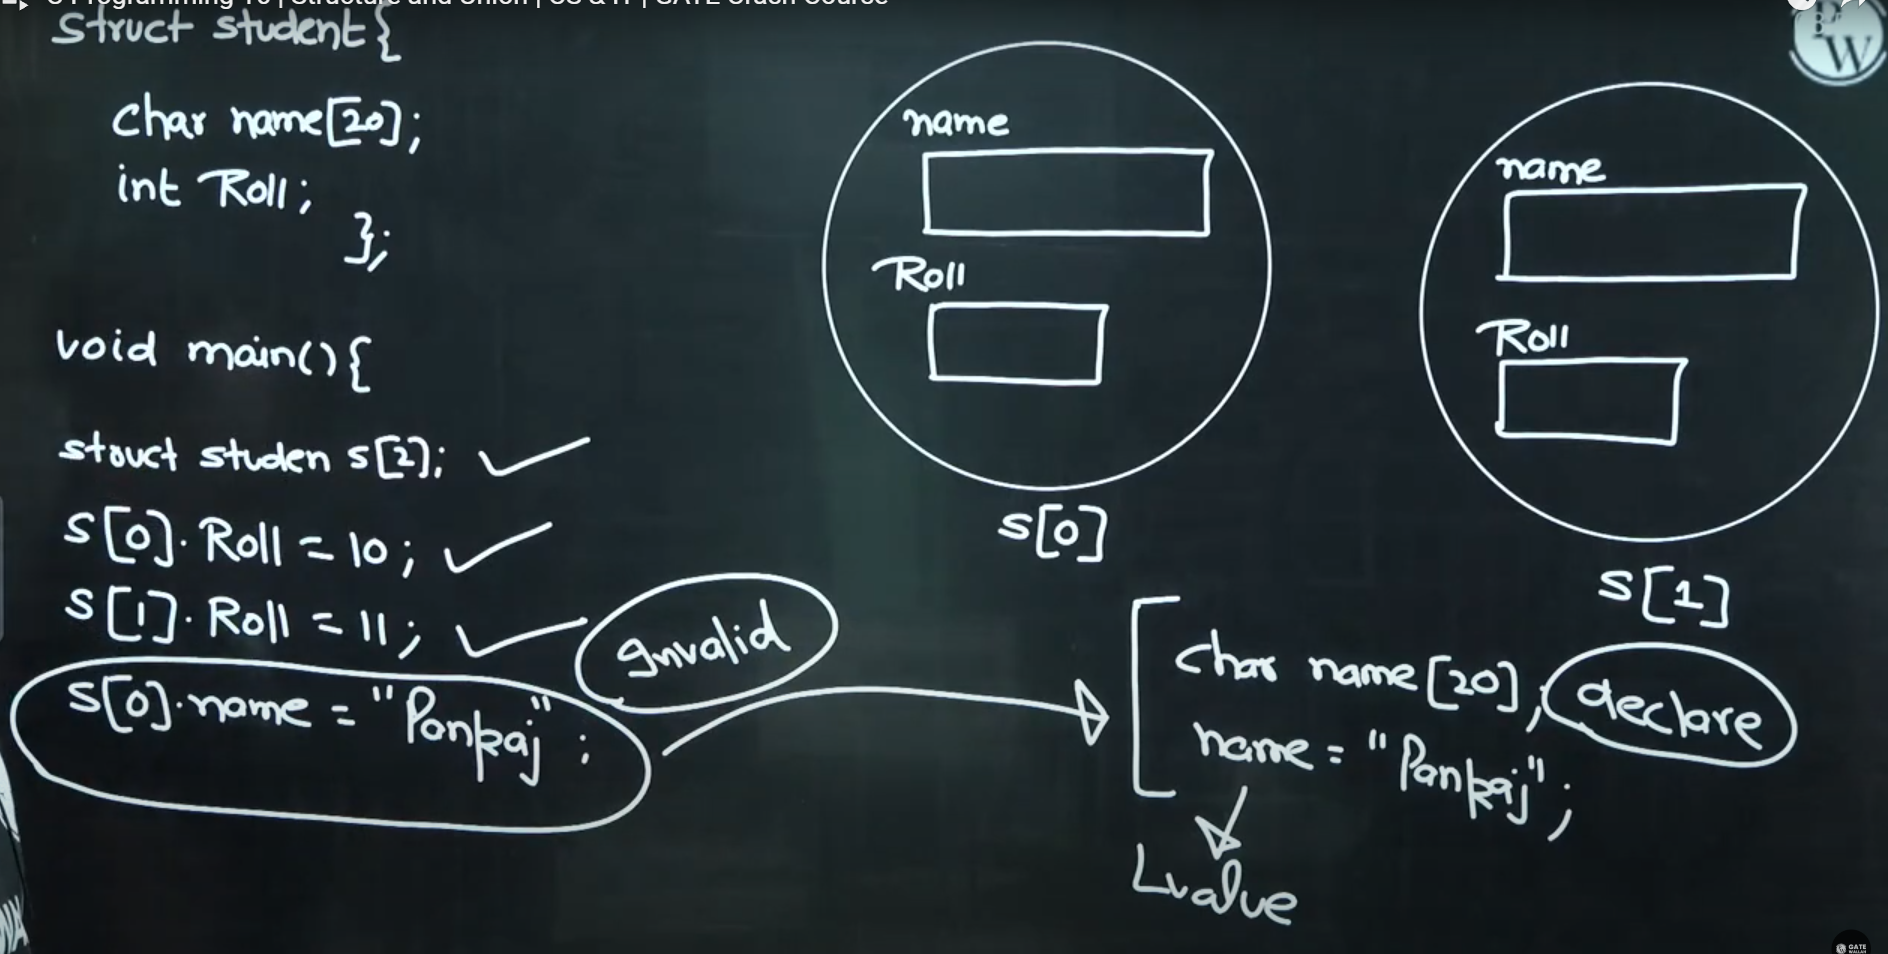 C Programming 10 | Structure and Union | CS & IT | GATE Crash Course
struct student{
char name[20];
int Roll;
};
void main(){
struct studen s[2];
s[0]. Roll = 10;
s[1]. Roll = 11;
s[0].name = "Pankaj";
Invalid
name
Roll
s[0]
name
Roll
s[1]
char name[20];
declare
name = "Pankaj";
Lvalue
PW
GATE
WALLAH